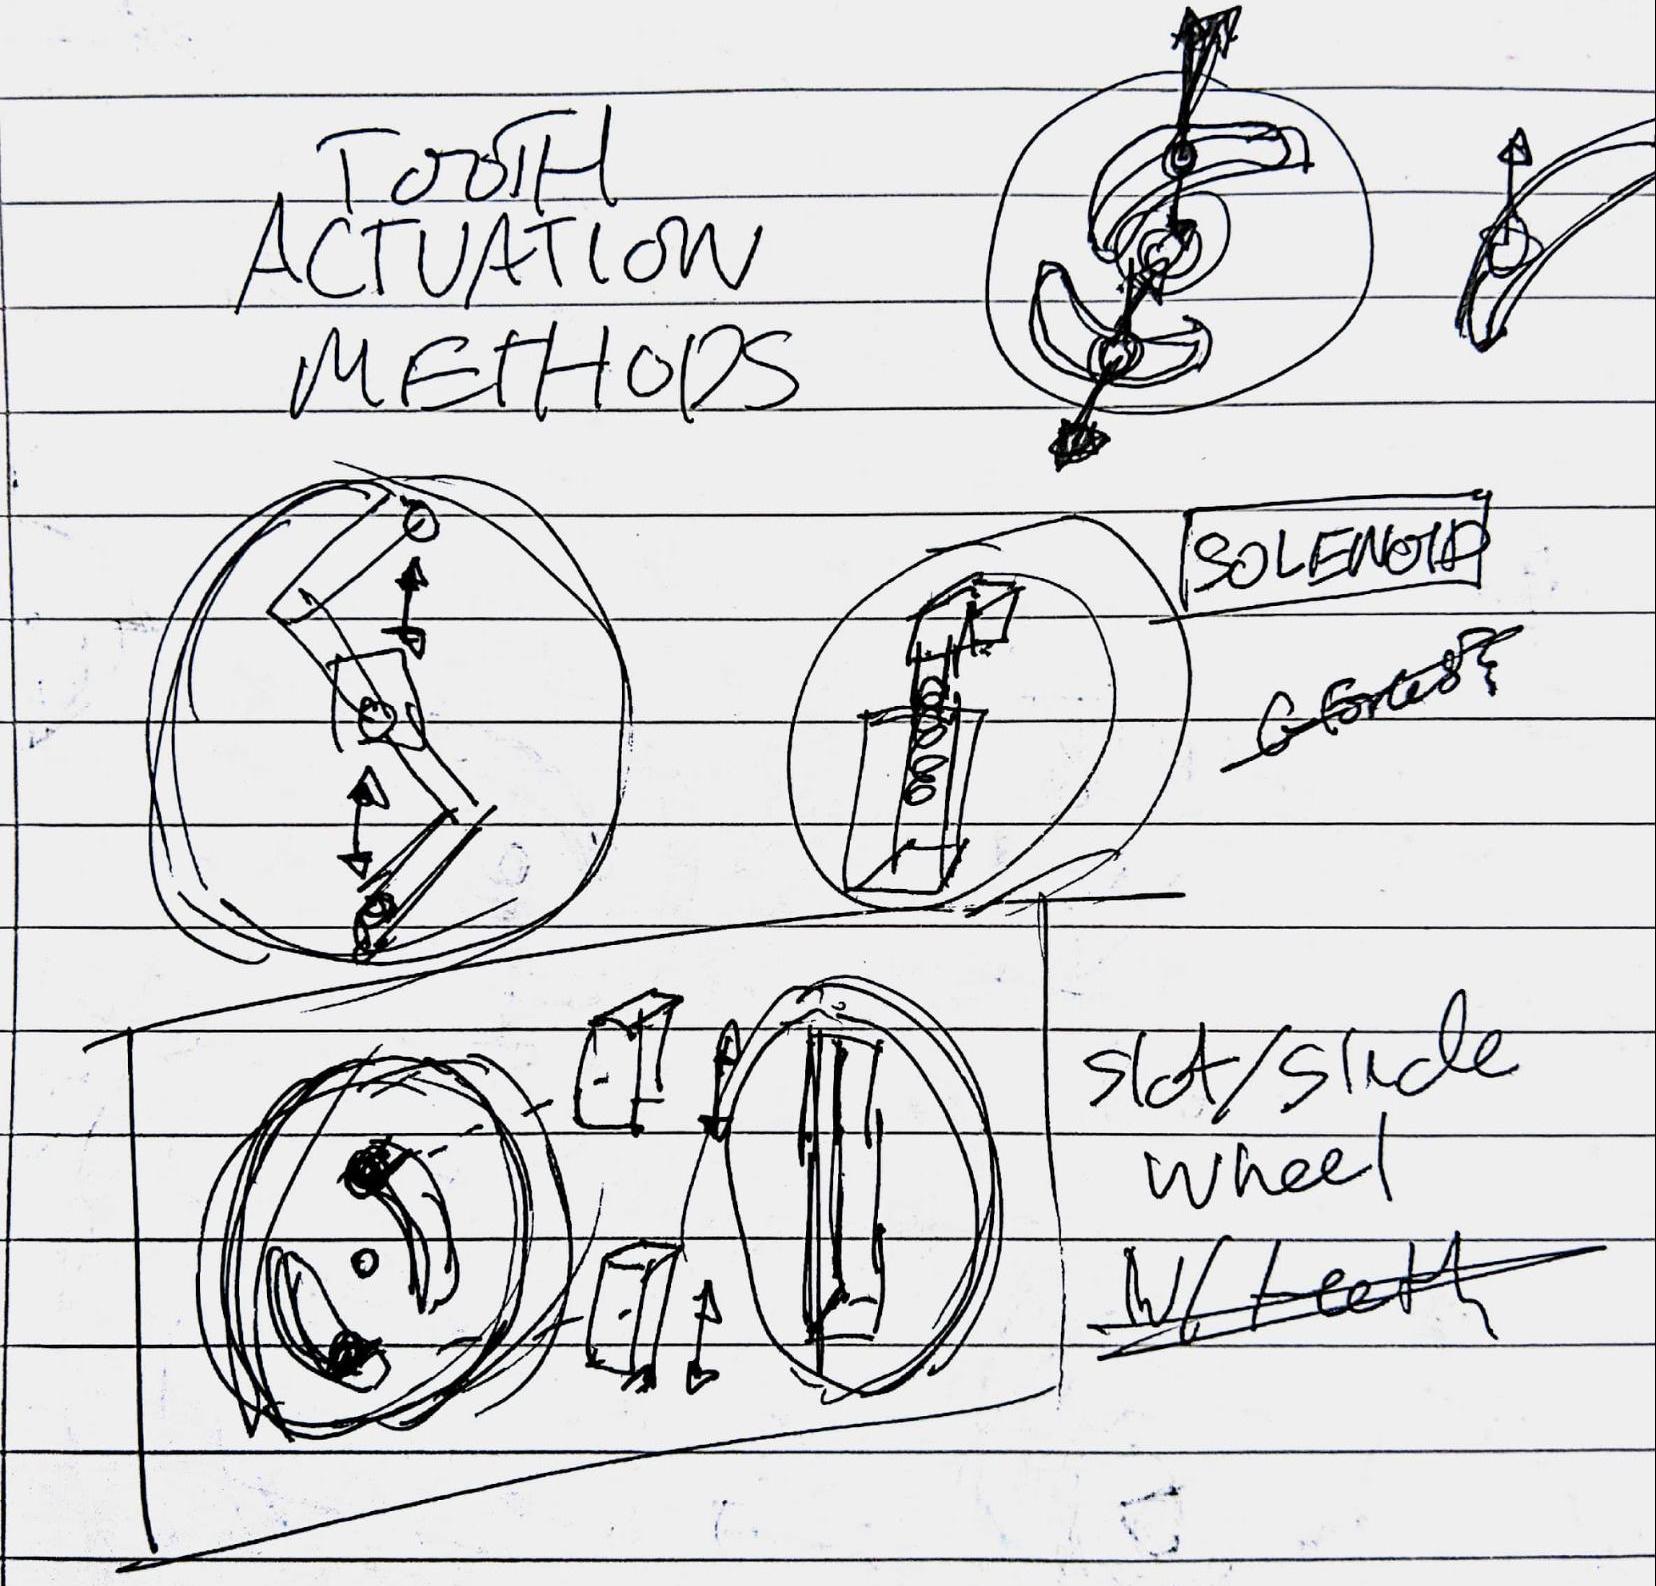 TOOTH
ACTUATION
METHODS
SOLENOID
G forces?
Slot/Slide
wheel
w/ teeth